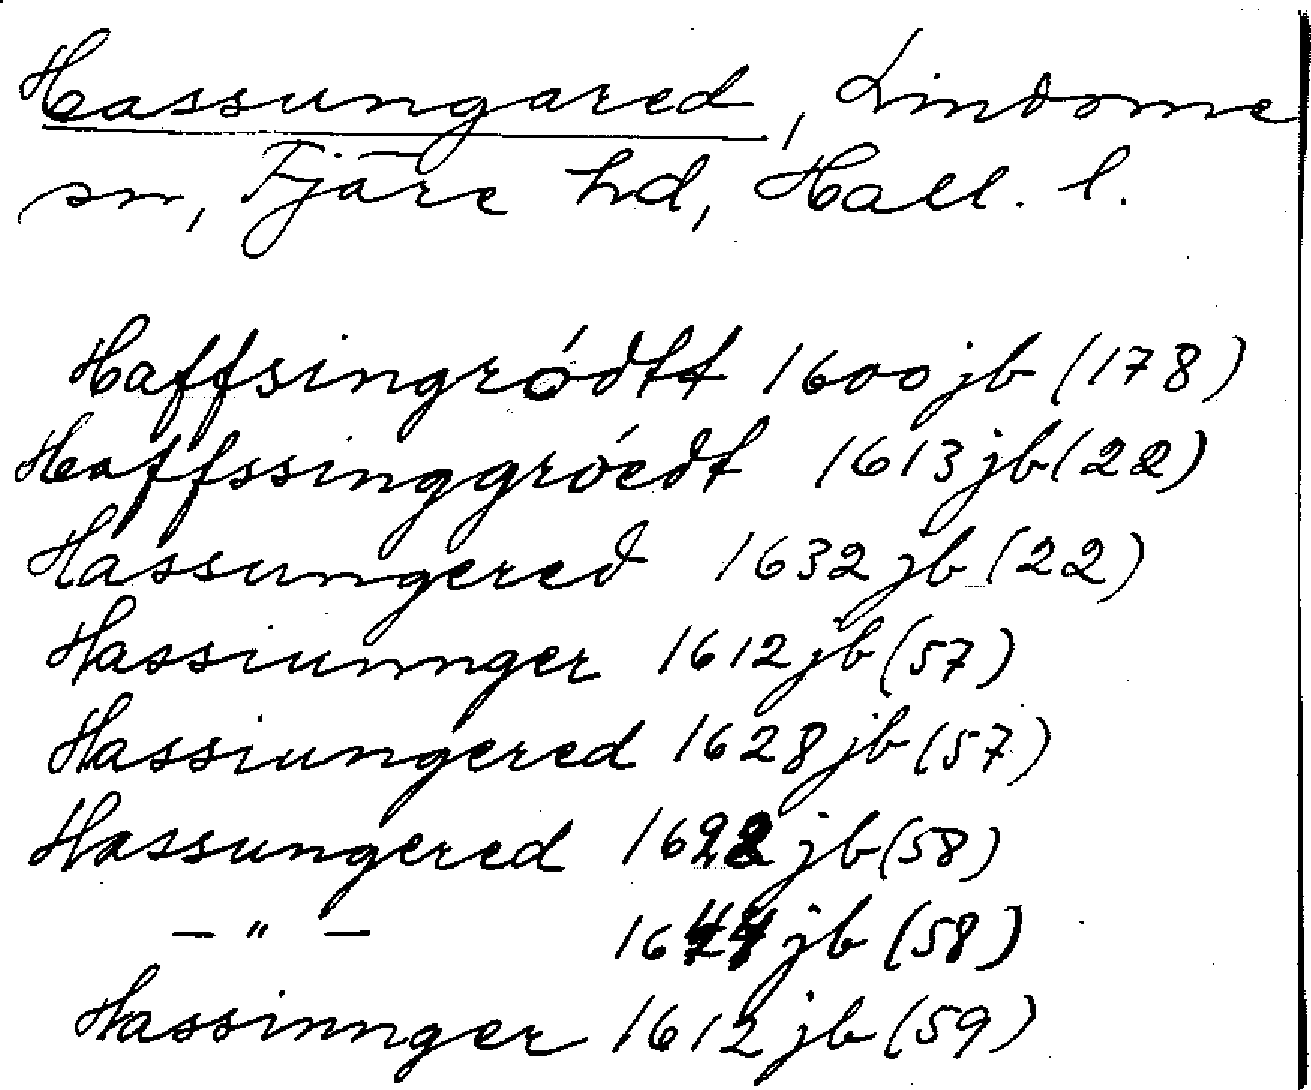 Hassungared, Lindome
sn, Fjäre hd, Hall. l.
Haffsingródtt 1600 jb (178)
Haffssinggróedt 1613 jb (22)
Hassungered 1632 jb (22)
Hassiunnger 1612 jb (57)
Hassiungered 1628 jb (57)
Hassungered 1622 jb (58)
— " — 1644 jb (58)
Hassinnger 1612 jb (59)